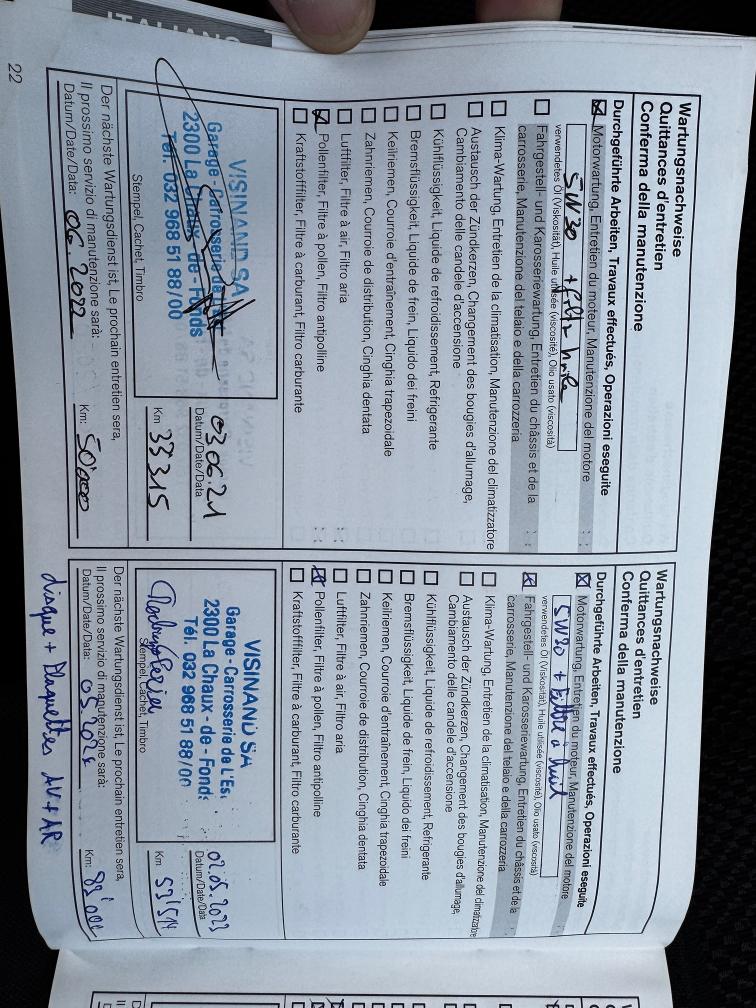 ITALIANO
Wartungsnachweise
Quittances d'entretien
Conferma della manutenzione
Durchgeführte Arbeiten, Travaux effectués, Operazioni eseguite
Motorwartung, Entretien du moteur, Manutenzione del motore
5W30 + filtre huile
verwendetes Öl (Viskosität), Huile utilisée (viscosité), Olio usato (viscosità)
Fahrgestell- und Karosseriewartung, Entretien du châssis et de la
carrosserie, Manutenzione del telaio e della carrozzeria
Klima-Wartung, Entretien de la climatisation, Manutenzione del climatizzatore
Austausch der Zündkerzen, Changement des bougies d'allumage,
Cambiamento delle candele d'accensione
Kühlflüssigkeit, Liquide de refroidissement, Refrigerante
Bremsflüssigkeit, Liquide de frein, Liquido dei freini
Keilriemen, Courroie d'entraînement, Cinghia trapezoidale
Zahnriemen, Courroie de distribution, Cinghia dentata
Luftfilter, Filtre à air, Filtro aria
Pollenfilter, Filtre à pollen, Filtro antipolline
Kraftstofffilter, Filtre à carburant, Filtro carburante
VISINAND SA
Garage - Carrosserie de
2300 La Chaux - de - Fonds
Tél. 032 968 51 88/00
Stempel, Cachet, Timbro
03.06.21
Datum/Date/Data
Km 33315
Der nächste Wartungsdienst ist, Le prochain entretien sera,
Il prossimo servizio di manutenzione sarà:
Datum/Date/Data: 06.2022 Km: 50'000
22
Wartungsnachweise
Quittances d'entretien
Conferma della manutenzione
Durchgeführte Arbeiten, Travaux effectués, Operazioni eseguite
Motorwartung, Entretien du moteur, Manutenzione del motore
5W30 + Filtre a huil
verwendetes Öl (Viskosität), Huile utilisée (viscosité), Olio usato (viscosità)
Fahrgestell- und Karosseriewartung, Entretien du châssis et de la
carrosserie, Manutenzione del telaio e della carrozzeria
Klima-Wartung, Entretien de la climatisation, Manutenzione del climatizzatore
Austausch der Zündkerzen, Changement des bougies d'allumage,
Cambiamento delle candele d'accensione
Kühlflüssigkeit, Liquide de refroidissement, Refrigerante
Bremsflüssigkeit, Liquide de frein, Liquido dei freini
Keilriemen, Courroie d'entraînement, Cinghia trapezoidale
Zahnriemen, Courroie de distribution, Cinghia dentata
Luftfilter, Filtre à air, Filtro aria
Pollenfilter, Filtre à pollen, Filtro antipolline
Kraftstofffilter, Filtre à carburant, Filtro carburante
VISINAND SA
Garage - Carrosserie de L'Es
2300 La Chaux - de - Fonds
Tél. 032 968 51 88/00
Stempel, Cachet, Timbro
02.05.2023
Datum/Date/Data
Km
Der nächste Wartungsdienst ist, Le prochain entretien sera,
Il prossimo servizio di manutenzione sarà:
Datum/Date/Data: 05.2025 Km:
disque + Plaquettes AV+AR